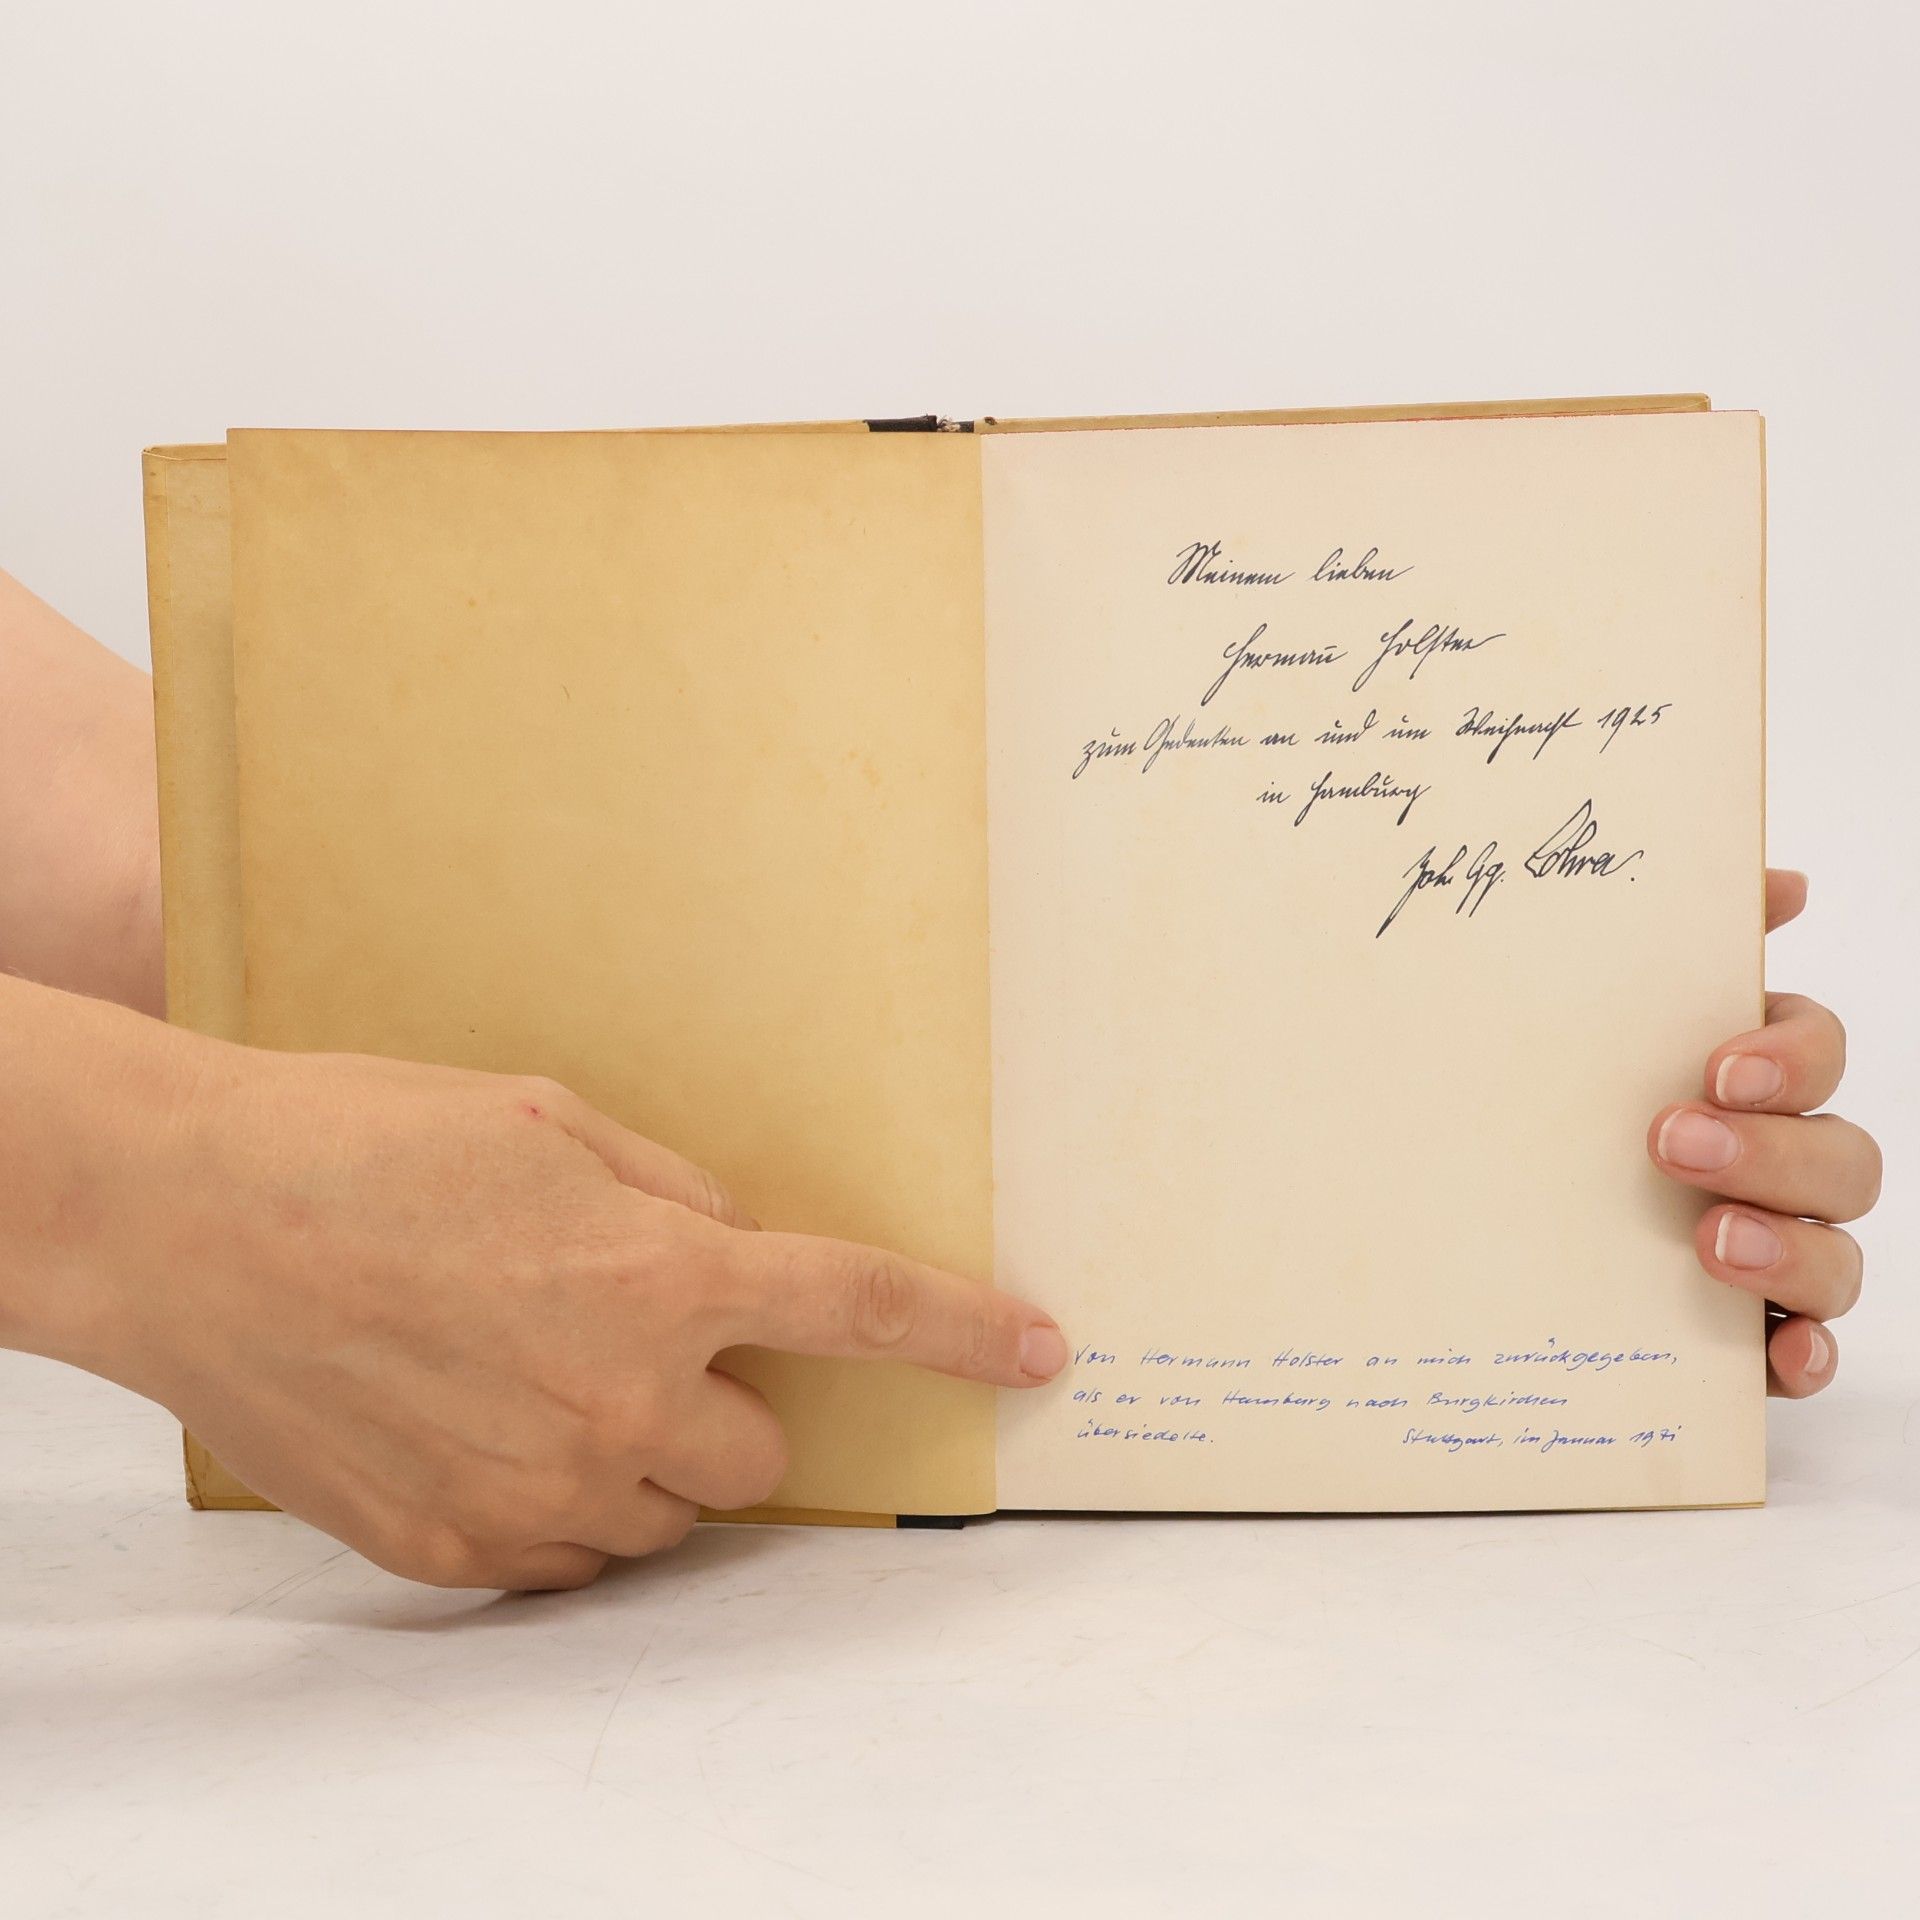 Meinem lieben
Hermann Holster
zum Gedenken an und um Weihnacht 1925
in Hamburg
Joh. Gg.
Von Hermann Holster an mich zurückgegeben,
als er von Hamburg nach Burgkirchen
übersiedelte. Stuttgart, im Januar 1971